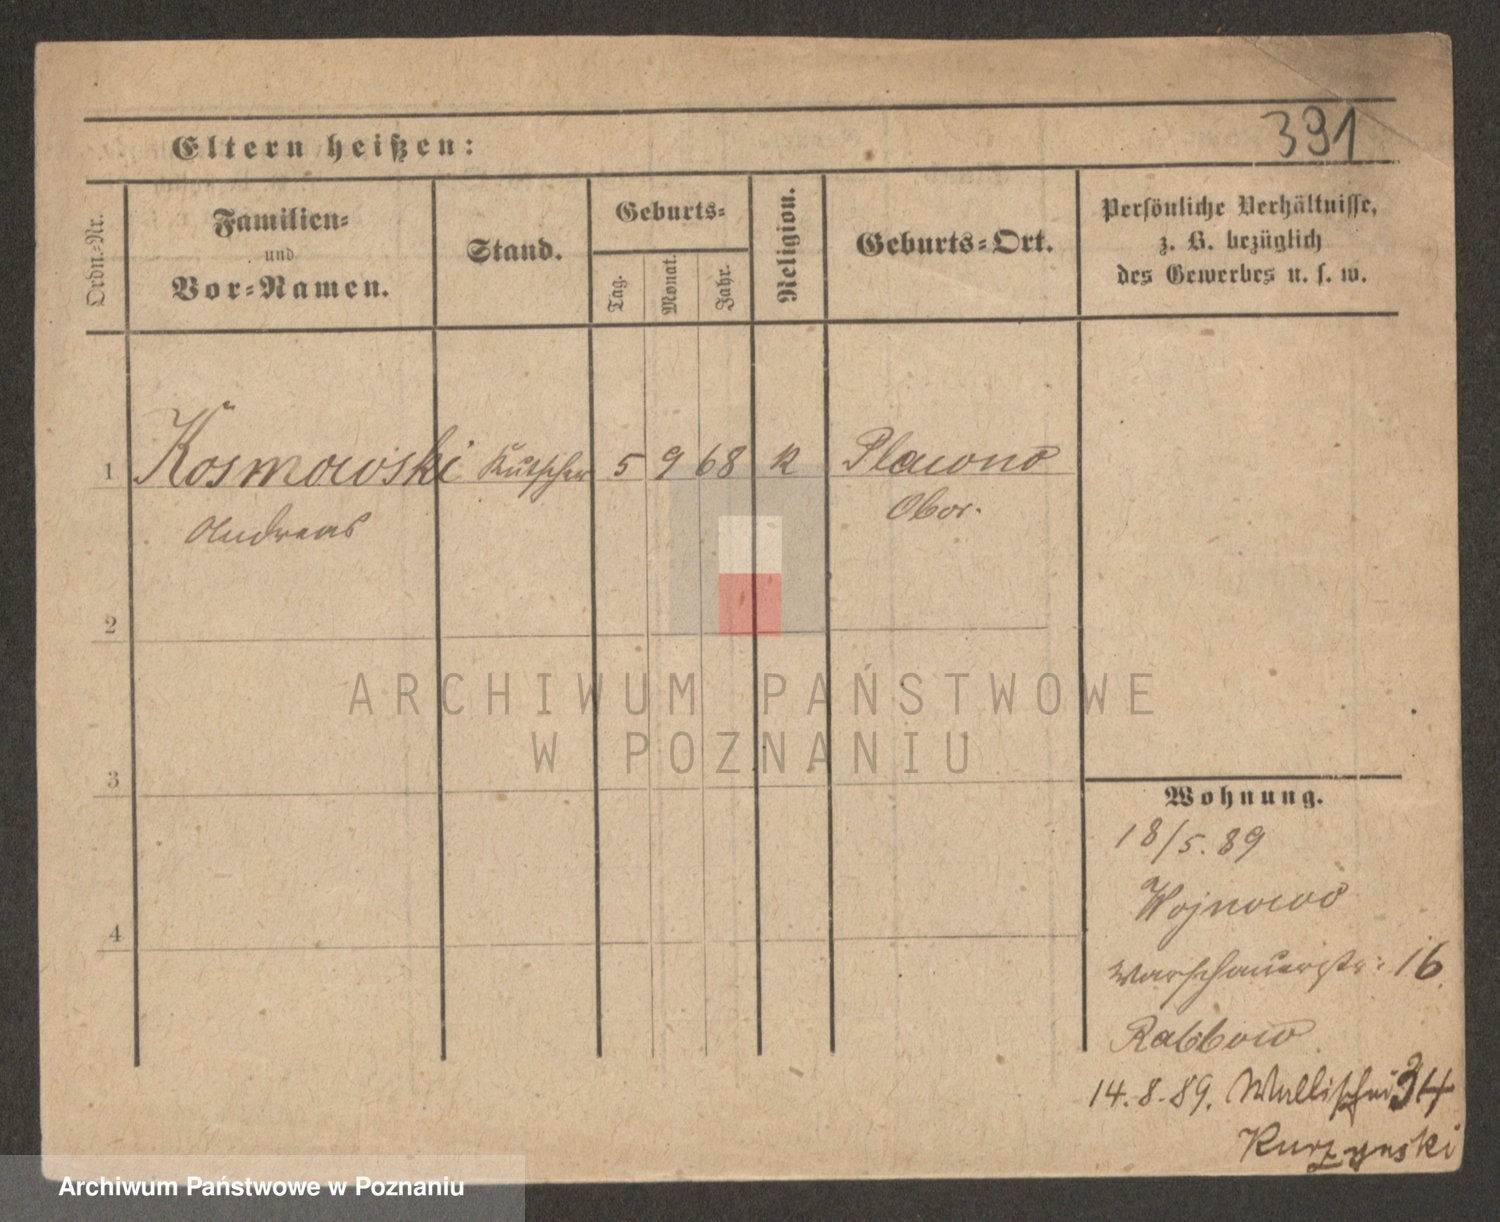 391
Eltern heißen:
Ordn.-Nr.
Familien-
und
Vor-Namen.
Stand.
Geburts-
Tag.
Monat.
Jahr.
Religion.
Geburts-Ort.
Persönliche Verhältnisse,
z. B. bezüglich
des Gewerbes u. s. w.
1 Kosmowski Kutscher 5 9 68 K
Andreas Obor.
2
3
4
ARCHIWUM PAŃSTWOWE
W POZNANIU
Wohnung.
18/5. 89
Wojnowo
Warschauerstr. 16.
Rabbow
14.8.89. Wallischei 34
Kurzynski
Archiwum Państwowe w Poznaniu